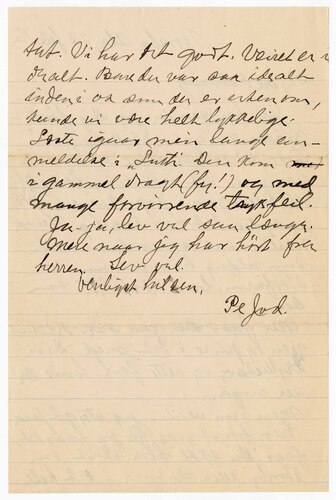 tat. Vi har det godt. Veiret er
idealt. Bare der var saa idealt
inden i os som der er utenom,
kunde vi være helt lykkelige.
Læste igaar min lange an-
meldelse i Den kom
i gammel dragt (fy!) og med
mange forvirrende trykfeil.
Ja, ja, lev vel saa længe.
Mere naar jeg har hört fra
herren. Lev vel.
Venligst hilsen,